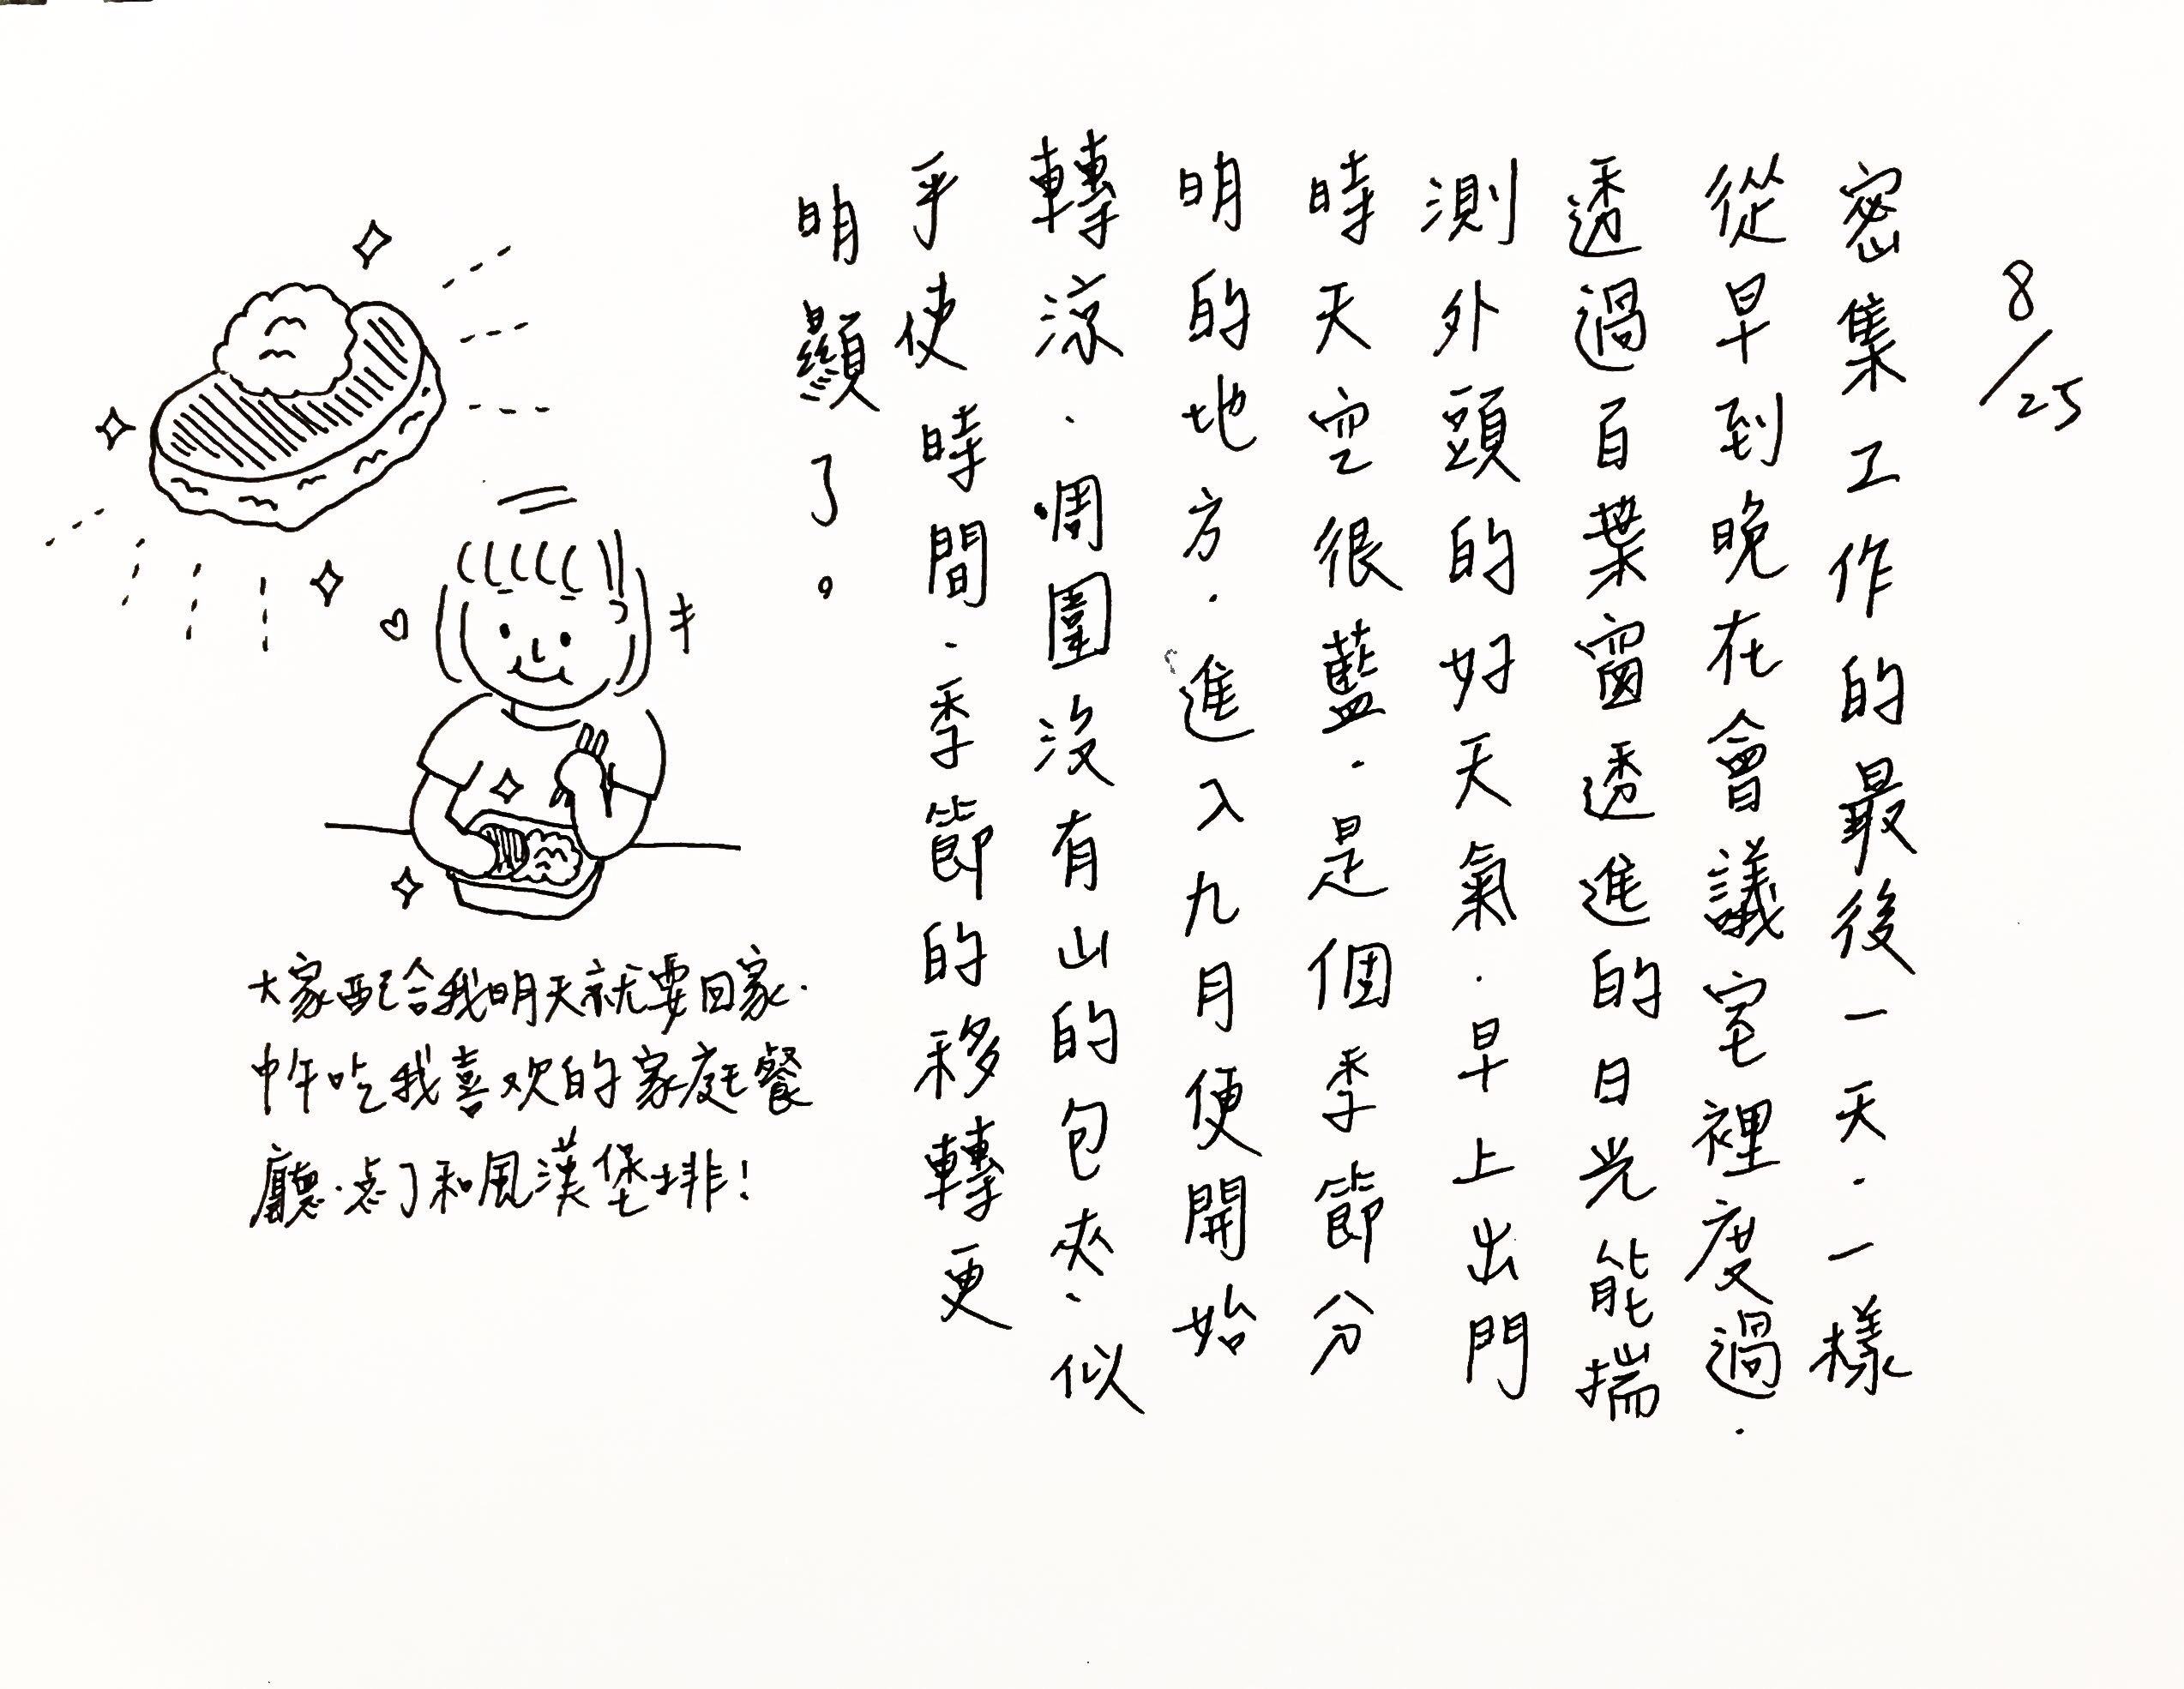 8/25
密集工作的最後一天．一樣
從早到晚在會議室裡度過．
透過百葉窗透進的日光能揣
測外頭的好天氣．早上出門
時天空很藍．是個季節分
明的地方．進入九月便開始
轉涼．周圍沒有山的包夾．似
乎使時間．季節的移轉更
明顯了。
大家配合我明天就要回家．
中午吃我喜歡的家庭餐
廳．點了和風漢堡排！